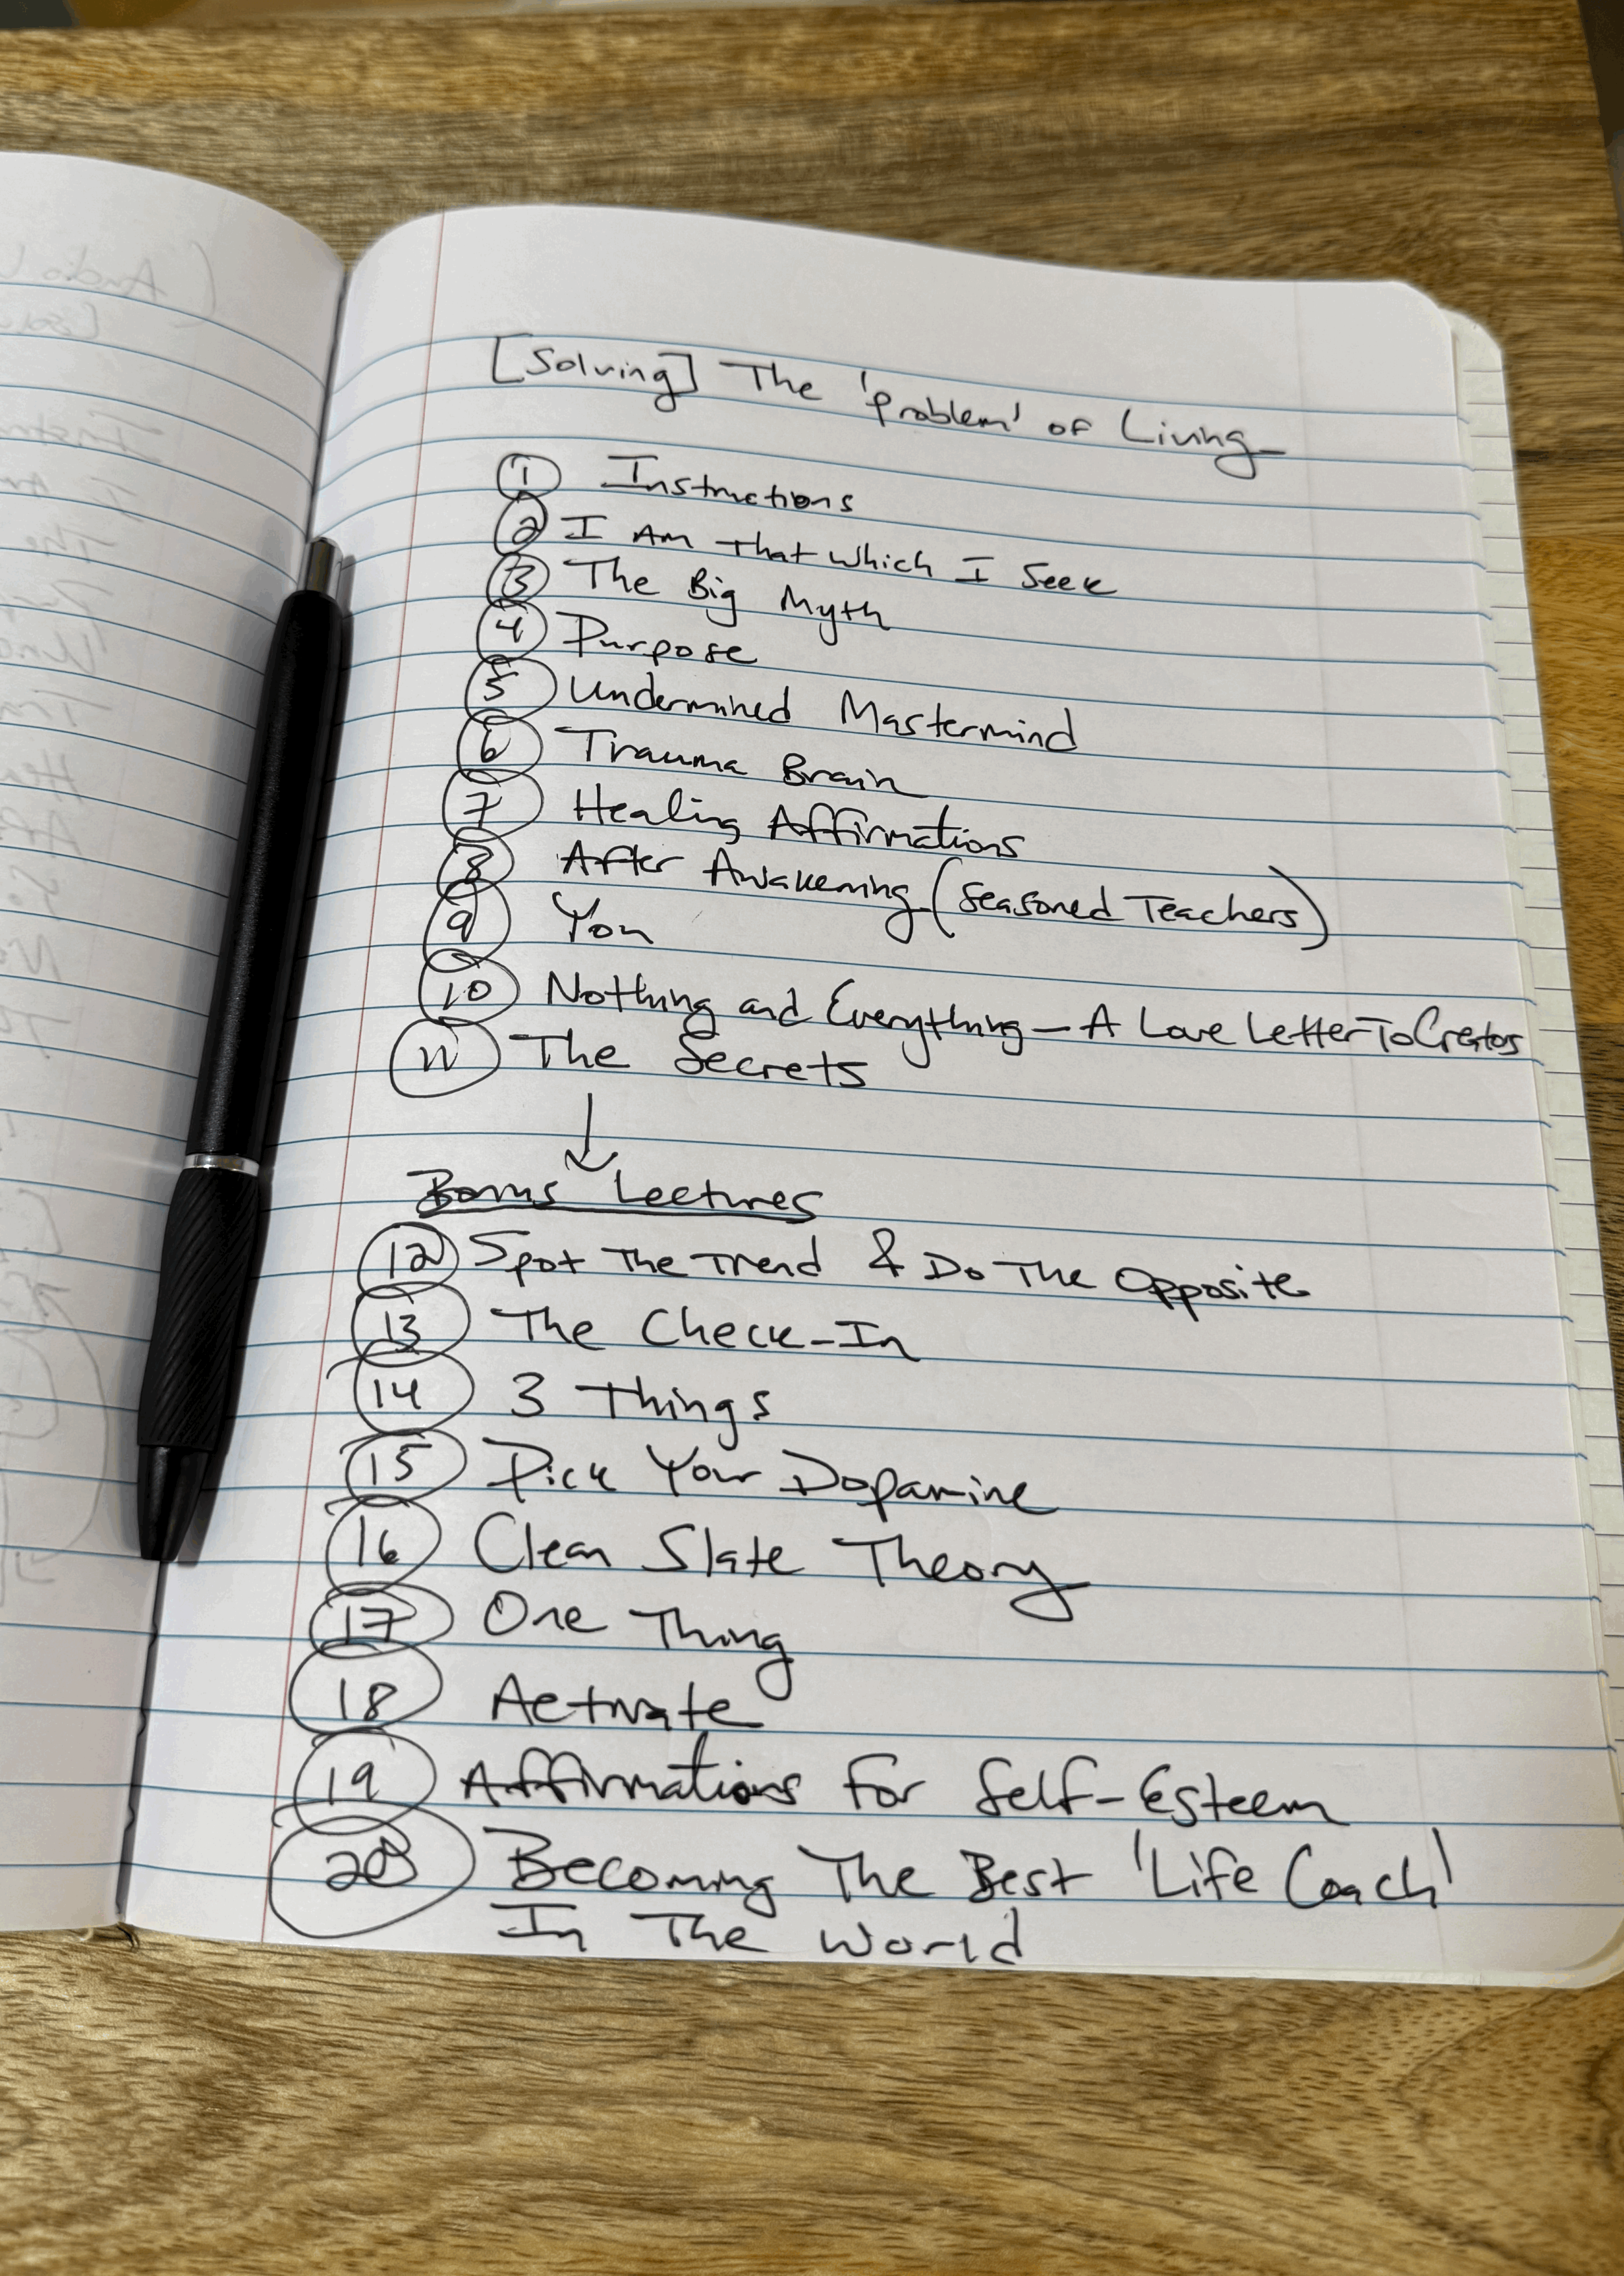 [Solving] The 'problem' of Living
1 Instructions
2 I Am That Which I Seek
3 The Big Myth
4 Purpose
5 Undermined Mastermind
6 Trauma Brain
7 Healing Affirmations
8 After Awakening (Seasoned Teachers)
9 You
10 Nothing and Everything - A Love Letter To Creators
11 The Secrets
↓
Bonus Lectures
12 Spot The Trend & Do The Opposite
13 The Check-In
14 3 Things
15 Pick Your Dopamine
16 Clean Slate Theory
17 One Thing
18 Activate
19 Affirmations For Self-Esteem
20 Becoming The Best 'Life Coach'
In The World